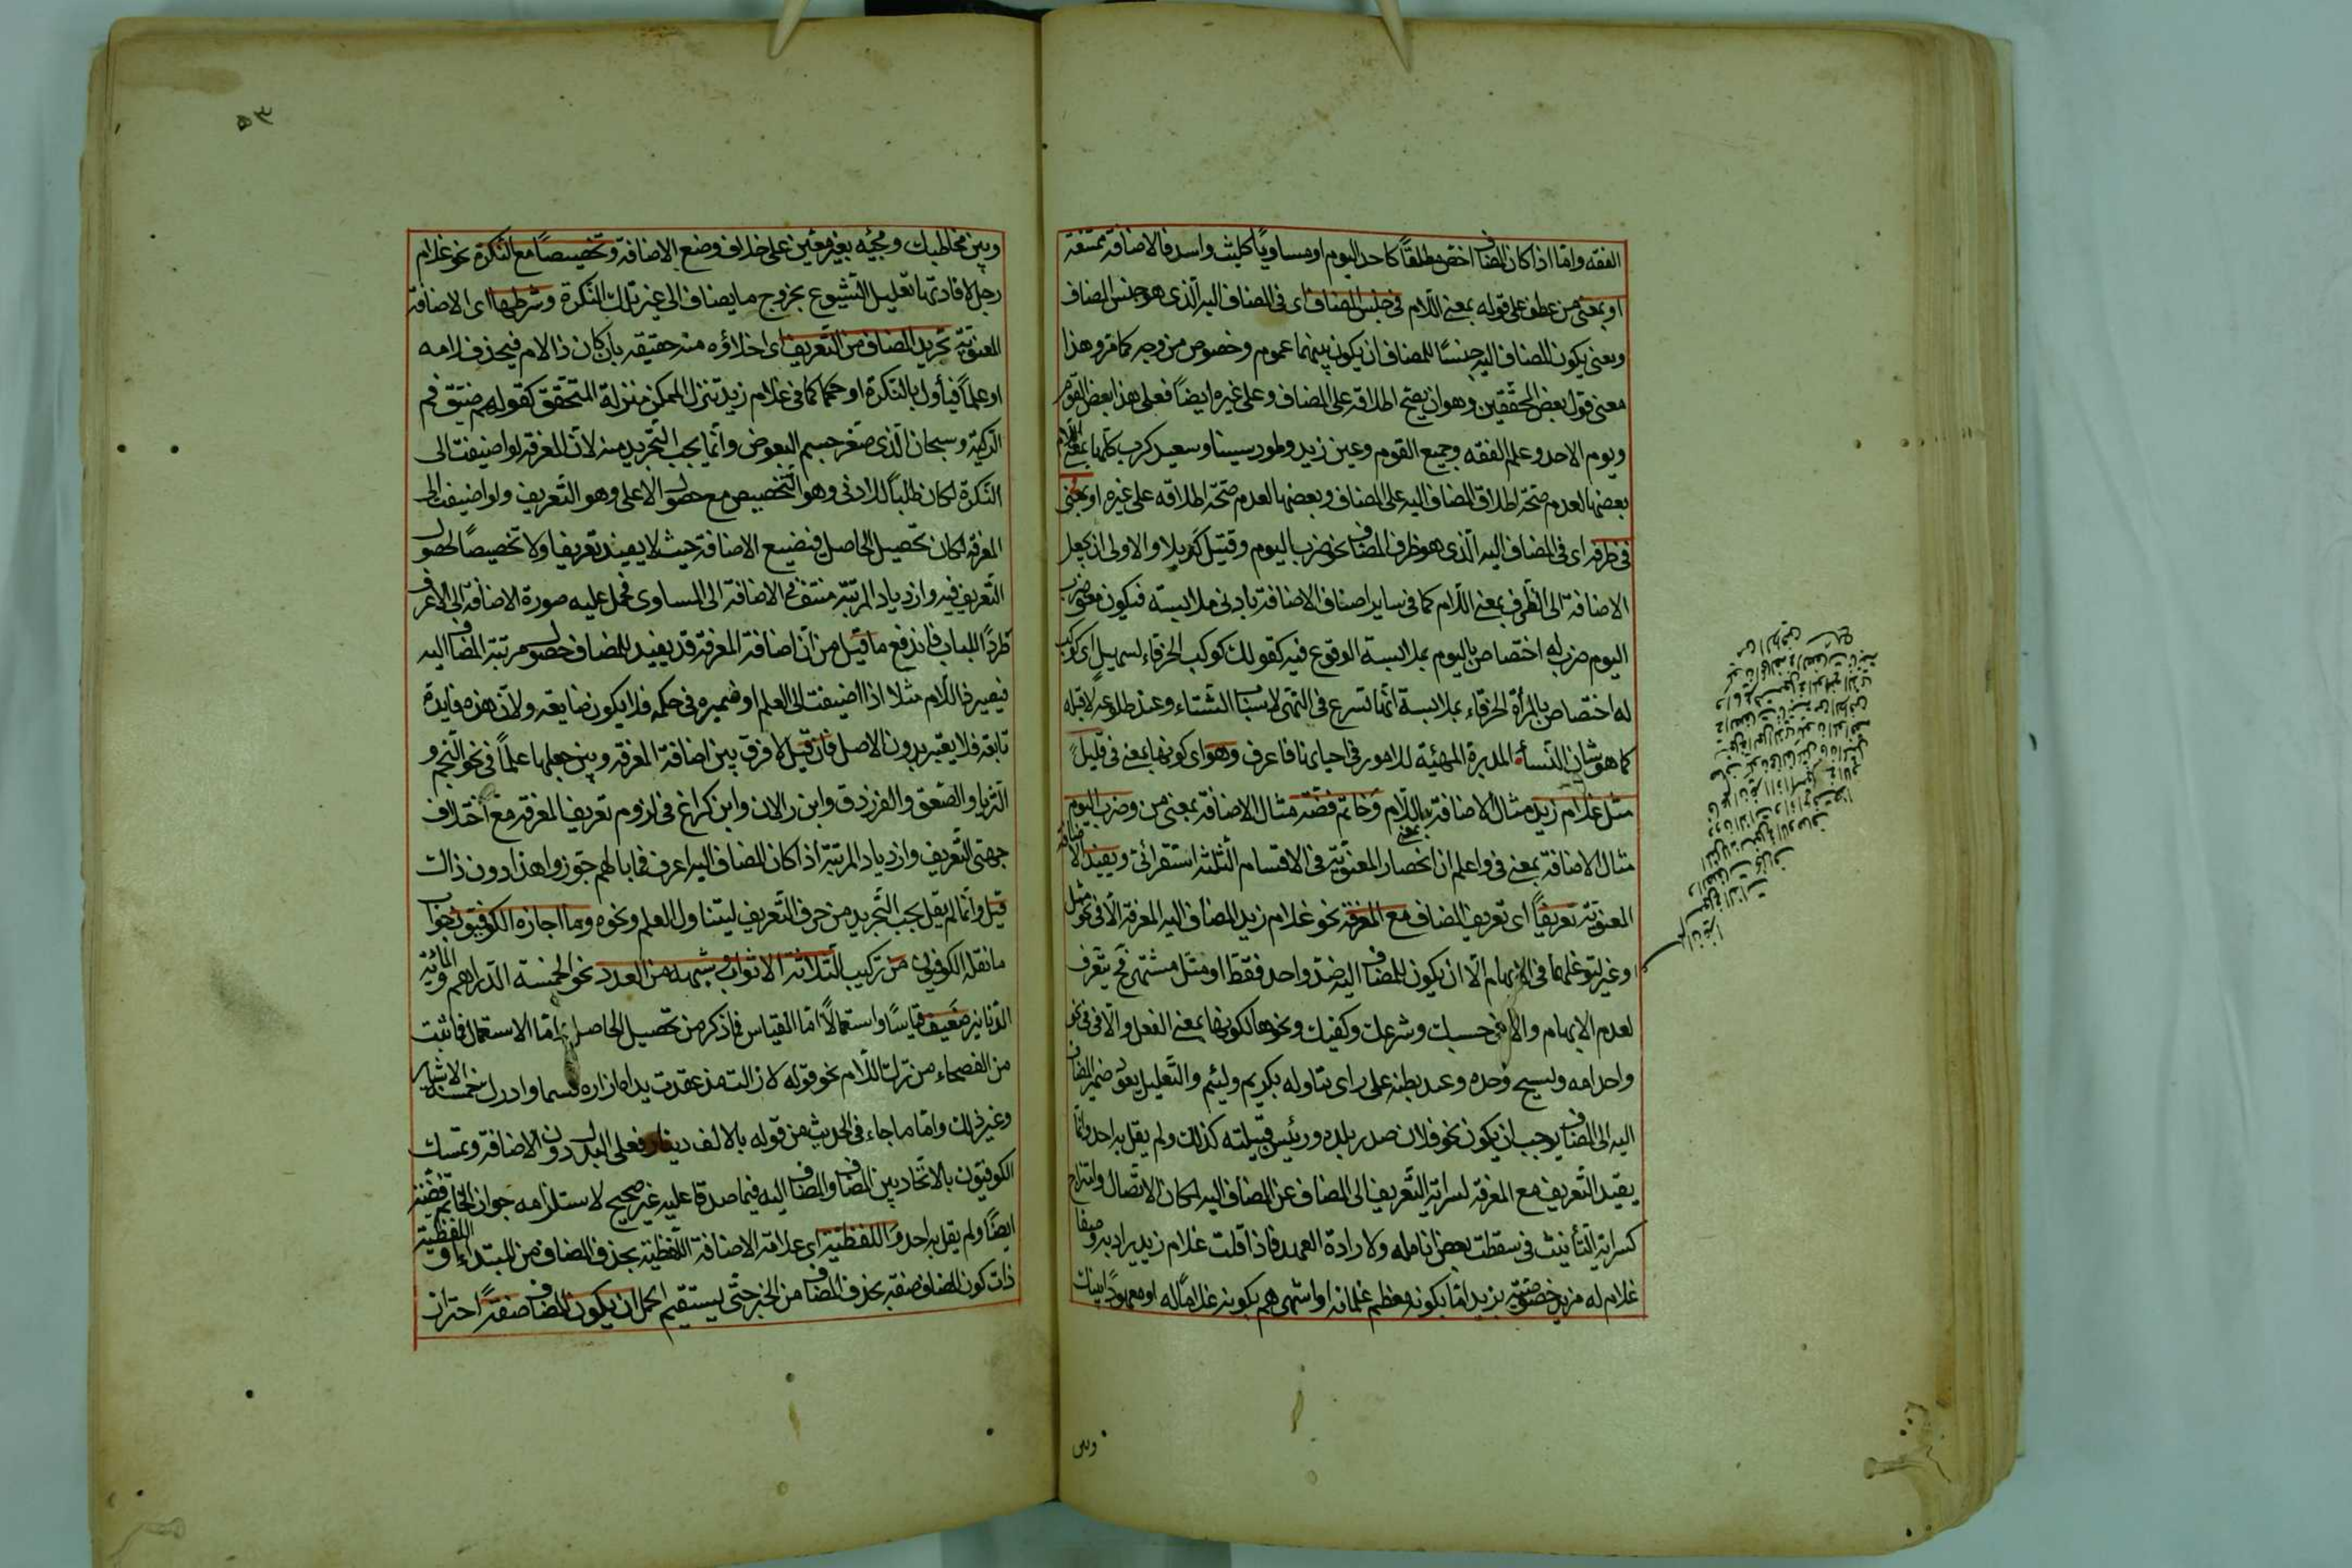 الفقه واما اذا كان المضاف اخص مطلقًا كاحد اليوم او مساويًا كليث واسد فالاضافة ممتنعة
او بمعنى من عطف على قوله بمعنى اللّام في جنس المضاف اى فى المضاف اليه الّذى هو جنس المضاف
ومعنى يكون المضاف اليه جنسًا للمضاف ان يكون بينهما عموم وخصوص من وجه كما مرّ وهذا
معنى قول بعض المحقّقين وهو ان يصحّ اطلاقه على المضاف وعلى غيره ايضًا فعلى هذا بعض القوم
ويوم الاحد وعلم الفقه وجميع القوم وعين زيد وطور سيناء وسعيد كرز كلّها بمعنى اللّام
بعضها لعدم صحّة اطلاق المضاف اليه على المضاف وبعضها لعدم صحّة اطلاقه على غيره او بمعنى
فى ظرفه اى فى المضاف اليه الّذى هو ظرف المضاف نحو ضرب اليوم وقتيل كربلا والاولى ان يجعل
الاضافة الى الظرف بمعنى اللّام كما فى ساير اصناف الاضافة بادنى ملابسة فيكون معنى ضرب
اليوم ضرب له اختصاص باليوم بملابسة الوقوع فيه كقولك كوكب الخرقاء لسهيل اى كوكب
له اختصاص بالمرأة الخرقاء بملابسة انّها تسرع فى التهيّ لاسباب الشّتاء وعند طلوعه لا قبله
كما هو شان النّسأ المدبرة المهيّئة للامور فى احيانها فاعرف وهو اى كونها بمعنى فى قليلً
مثل غلام زيد مثال لاضافة بمعنى اللّام وخاتم فضّة مثال الاضافة بمعنى من وضرب اليوم
مثال الاضافة بمعنى فى واعلم ان انحصار المعنويّة فى الاقسام الثّلثه استقرائى ويفيد الاضافة
المعنويّة تعريفًا اى تعريف المضاف مع المعرفة نحو غلام زيد المضاف اليه المعرفة الّا فى نحو مثل
وغير لتوغّلها فى الابهام الّا ان يكون للمضاف اليه ضدّ واحد فقط او مثل مشتهر فح يتعرّف
لعدم الابهام والا فى حسبك وشرعك وكفيك ونحوها لكونها بمعنى الفعل والّا فى نحو
واحد امه ونسيج وحده وعبد بطنه على راى بتاوله بكريم ولئيم والتّعليل بعود ضمير المضاف
اليه الى المضاف يوجب ان يكون نحو فلان صدر بلده ورئيس قبيلته كذلك ولم يقل به احد وانّما
يفيد التّعريف مع المعرفة لسراية التّعريف الى المضاف عن المضاف اليه لمكان الاتّصال وامتزاج
كسراية التّأنيث فى سقطت بعض انامله ولارادة العهد فاذا قلت غلام زيد يراد به
غلام له مزيد خصوصيّة بزيد امّا بكونه معظم غلمانه او اشهرهم بكونه غلامًا له او معهودًا بينك
وبين
وبين مخاطبك ومجيّه بغير معيّن على خلاف وضع الاضافة وتخصيصًا مع النّكرة نحو غلام
رجل لافادتها تقليل الشّيوع بخروج ما يضاف الى غير تلك النّكرة وشرطها اى الاضافة
المعنويّة تجريد المضاف من التّعريف اى اخلاؤه منه حقيقة بان كان ذا لام فيحذف لامه
او علمًا فيأول بالنّكرة او حكما كما فى غلام زيد تنزل الممكن منزلة المتحقق كقولهم ضيّق فم
الركيّة وسبحان الّذى صغّر جسم البعوض وانّما يجب التّجريد منه لانّ المعرفة لو اضيفت الى
النّكرة لكان طلبًا للادنى وهو التّخصيص مع حصول الاعلى وهو التّعريف ولو اضيفت الى
المعرفة لكان تحصيل الحاصل فتضيع الاضافة حيث لا يفيد تعريفا ولا تخصيصًا لحصول
التّعريف فيه وازدياد المرتبة منتف فى الاضافة الى المساوى فحمل عليه صورة الاضافة الى الاعرف
طردًا للباب فاندفع ما قيل من انّ اضافة المعرفة قد يفيد للمضاف حصول مرتبة المضاف اليه
فيصير ذا اللّام مثلا اذا اضيفت الى العلم او ضميره فى حكمه فلا يكون ضايعة ولانّ هذه فايدة
تابعة فلا يعتبر بدون الاصل فان قيل لا فرق بين اضافة المعرفة وبين جعلها علمًا فى نحو النّجم و
الثّريا والصّعق والفرزدق وابن رالان وابن كراع فى لزوم تعريف المعرفة مع اختلاف
جهتى التّعريف وازدياد المرتبة اذا كان المضاف اليه اعرف فما بالهم جوّزوا هذا دون ذاك
قيل وانّما لم يقل يجب التّجريد من حرف التّعريف ليتناول العلم ونحوه وما اجازه الكوفيّون
ما نقله الكوفيون من تركيب الثّلاثة الاثواب وشبهه من العدد نحو الخمسة الدّراهم والمائة
الدّنانير ضعيف قياسًا واستعمالًا امّا القياس فما ذكر من تحصيل الحاصل وامّا الاستعمال فما ثبت
من الفصحاء من ترك اللّام نحو قوله لا زالت مذ عقدت يداه ازاره فسما وادرك خمسة الاشبار
وغير ذلك وامّا ما جاء فى الحديث من قوله بالالف دينار فعلى البدل دون الاضافة وتمسّك
الكوفيّون بالاتّحاد بين المضاف والمضاف اليه فيما صدقا عليه غير صحيح لاستلزامه جواز الخاتم فضّة
ايضًا ولم يقل به احد واللفظيّة اى علامة الاضافة اللّفظيّة بحذف المضاف من المبتداء و
ذات كون المضاف صفة بحذف المضاف من الخبر حتّى يستقيم الحمل ان يكون المضاف صفةً احتراز